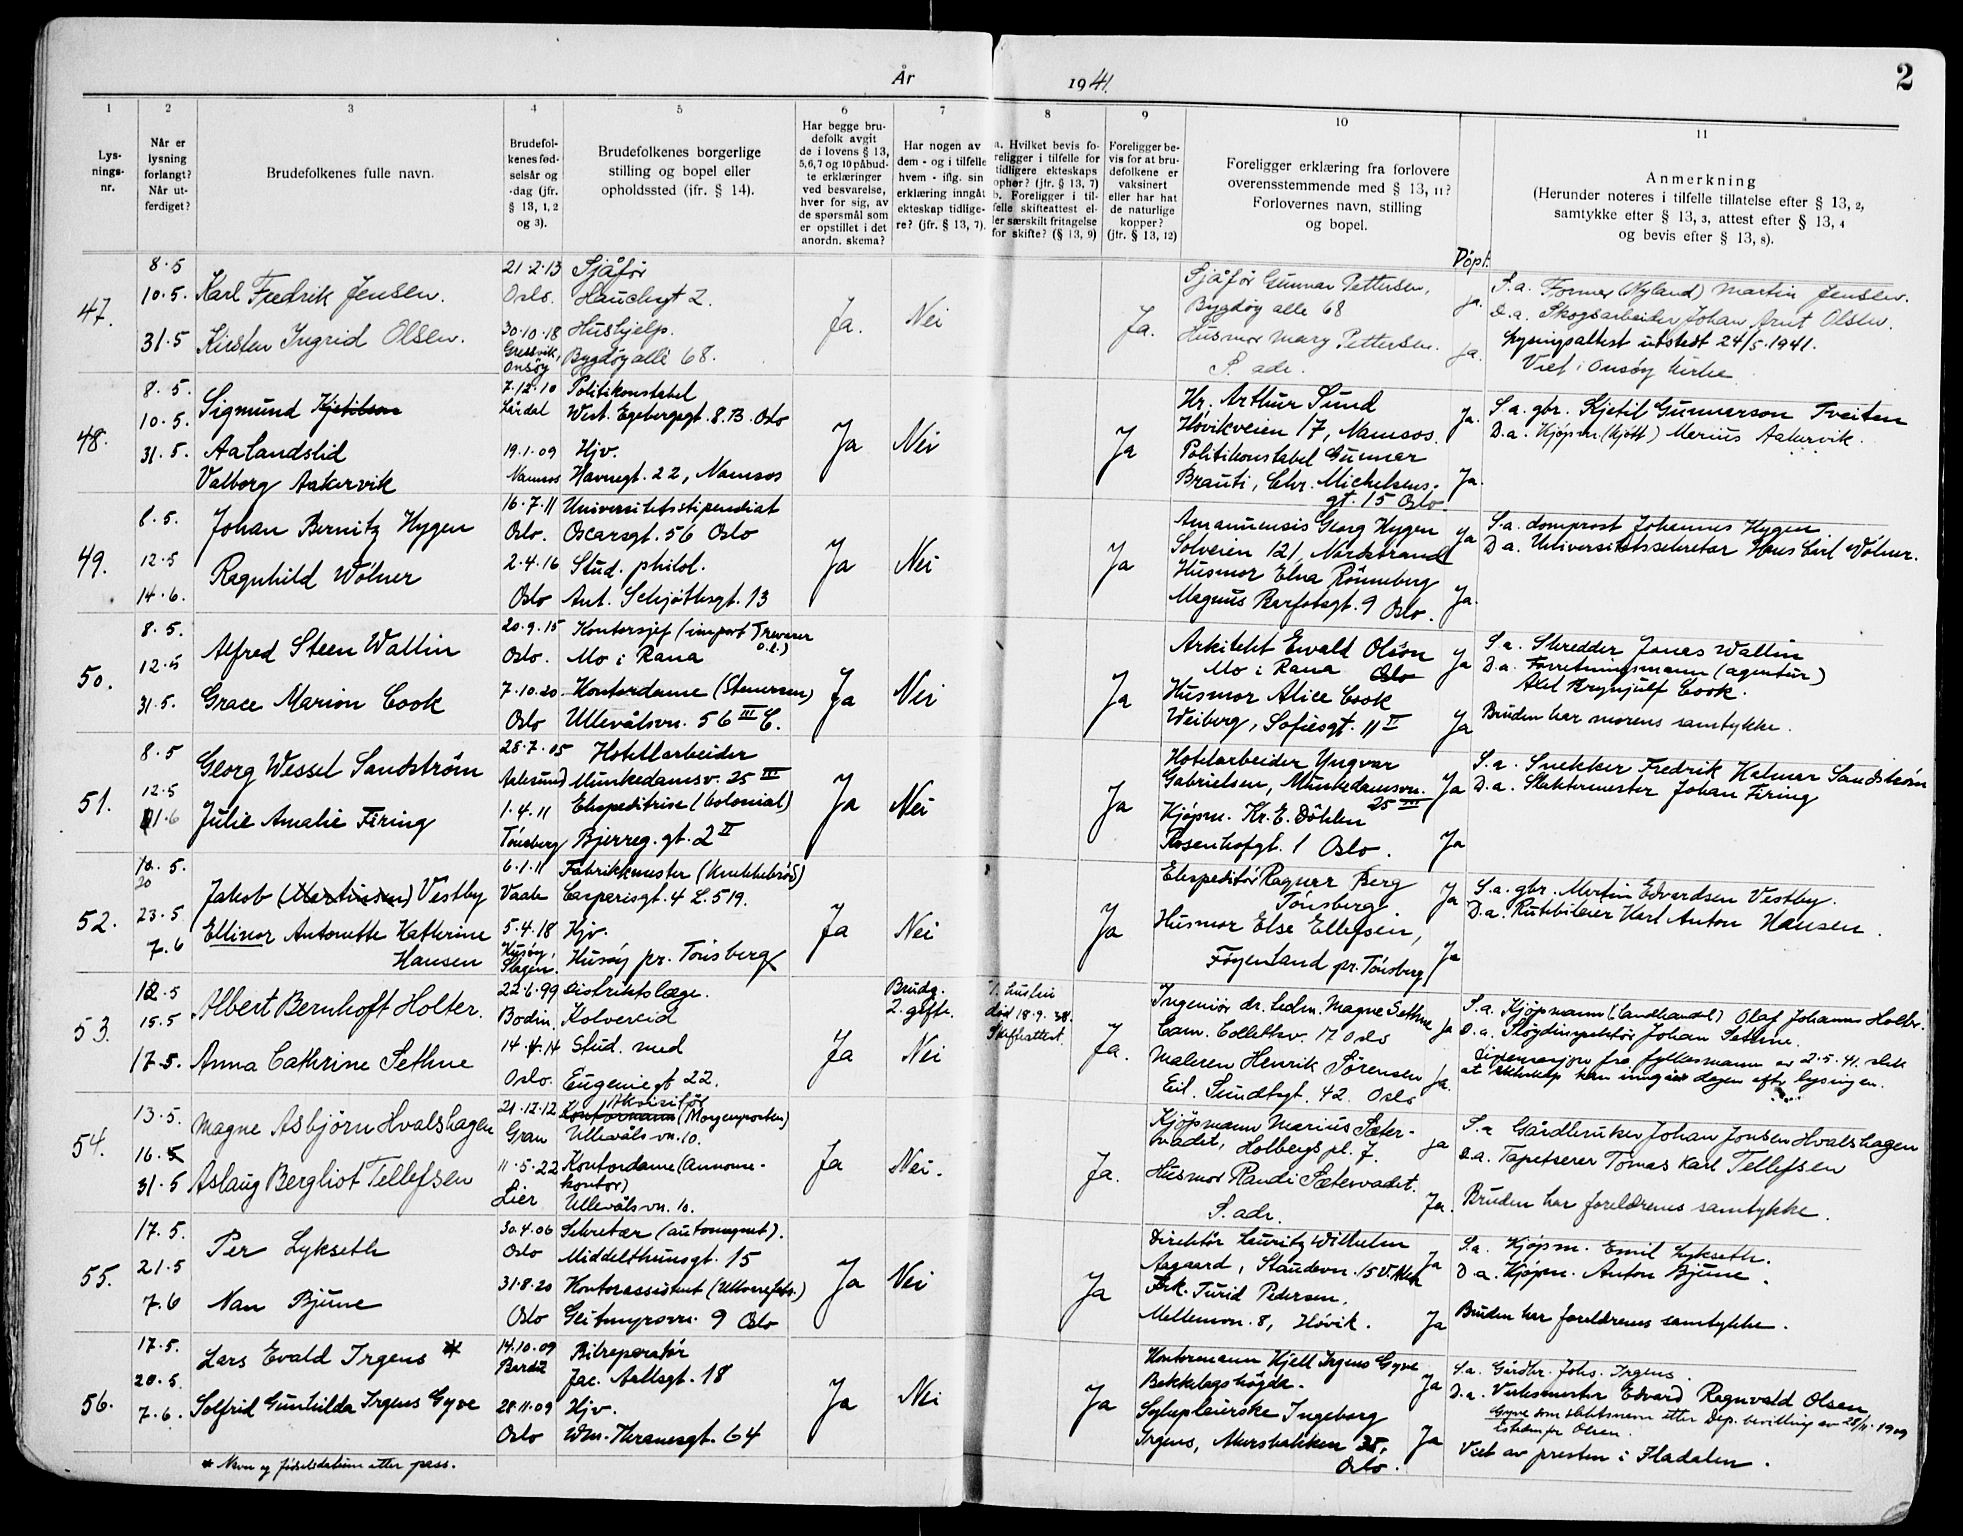 År 1941.
2
1 2 3 4 5 6 7 8 9 10 11
Lys-
nings-
nr.
Når er
lysning
forlangt?
Når ut-
ferdiget?
Brudefolkenes fulle navn.
Brudefol-
kenes fød-
selsår og
-dag (jfr.
§ 13, 1, 2
og 3).
Brudefolkenes borgerlige
stilling og bopel eller
opholdssted (ifr. § 14).
Har begge bru-
defolk avgit
de i lovens § 13,
5,6,7 og 10 påbud-
te erklæringer
ved besvarelse,
hver for sig, av
de spørsmål som
er opstillet i det
anordn. skema?
Har nogen av
dem - og i tilfelle
hvem - iflg. sin
erklæring inngåt
ekteskap tidlige-
re? (jfr. § 13, 7).
a. Hvilket bevis fo-
religger i tilfelle for
tidligere ekteskaps
ophør? (jfr. § 13, 7)
b. Foreligger i til-
felle skifteattest el-
ler særskilt fritagelse
for skifte? (§ 13, 9)
Foreligger be-
vis for at bru-
defolkene er
vaksinert
eller har hat
de naturlige
kopper?
(jfr. § 13, 12)
Foreligger erklæring fra forlovere
overensstemmende med § 13, 11?
Forlovernes navn, stilling
og bopel.
Døpt.
Anmerkning
(Herunder noteres i tilfelle tillatelse efter § 13, 2,
samtykke efter § 13, 3, attest efter § 13, 4
og bevis efter § 13, 8).
47.
8.5
10.5.
31.5
Karl Fredrik Jensen.
Kirsten Ingrid Olsen.
21.2.13
Oslo.
30.10.18
Gressvik,
Onsøy
Sjåfør
Hauchsgt 2.
Hushjelp.
Bygdøy allé 68.
Ja.
Nei
Ja.
Sjåfør Gunnar Pettersen,
Bygdøy alle 68
Husmor Mary Pettersen.
S. adr.
ja
ja.
S.a. Former (Nyland) Martin Jensen.
D.a. Skogsarbeider Johan Arnt Olsen.
Lysningsattest utstedt 24/5.1941.
Viet i Onsøy kirke
48.
8.5.
10.5.
31.5.
Sigmund Kjetilson
Aalandslid
Valborg Aakervik
7.12.10
Lårdal
19.1.09
Namsos
Politikonstabel
West. Egebergsgt. 8.B. Oslo
Hjv.
Havnegt. 22, Namsos
Ja
Nei
Ja
Hr. Arthur Sund
Høvikveien 17, Namsos.
Politikonstabel Gunnar
Brauti, Chr. Michelsens-
gt. 15 Oslo.
Ja.
Ja.
S.a. gbr. Kjetil Gunnarson Tveiten
D.a. Kjøpm. (kjøtt) Marius Aakervik.
49.
8.5.
12.5
14.6.
Johan Bernitz Hygen
Ragnhild Wölner
16.7.11
Oslo.
2.4.16
Oslo
Universitetsstipendiat
Oscarsgt. 56 Oslo
Stud. philol.
Ant. Schjøthsgt. 13
Ja
Nei
Ja
Amanuensis Georg Hygen
Solveien 121, Nordstrand
Husmor Elna Rönneberg
Magnus Barfotsgt. 9 Oslo.
Ja
Ja.
S.a. domprost Johannes Hygen.
D.a. Universitetssekretær Hans Carl Wölner.
50.
8.5.
12.5
31.5.
Alfred Steen Wallin
Grace Marion Cook
20.9.15
Oslo.
7.10.20
Oslo
Kontorsjef (import Trevarer
o.l.)
Mo i Rana
Kontordame (Stenersen)
Ullevålsvn. 56 III C.
Ja
Nei
Ja
Arkitekt Ewald Olson
Mo i Rana Oslo
Husmor Alice Cook
Weiberg, Sofiesgt. 11 II
Ja
Ja
S.a. Skredder Jonas Wallin
D.a. Forretningsmann (agentur)
Axel Brynjulf Cook.
Bruden har morens samtykke.
51.
8.5
12.5
11.6
Georg Wessel Sandström
Julie Amalie Firing
25.7.05
Aalesund
1.4.11
Tönsberg
Hotellarbeider
Munkedamsv. 25 III
Ekspeditrise (kolonial)
Bjerreg.gt. 2 II
Ja
Nei
Ja
Hotelarbeider Yngvar
Gabrielsen, Munkedamsvn.
25 III
Kjøpm. Kr. E. Döhlen
Rosenhofgt. 1 Oslo.
Ja
Ja
S.a. Snekker Fredrik Halmar Sandström
D.a. Slaktermester Johan Firing
52.
10.5.
20
23.5
7.6
Jakob (Martinsen) Vestby
Ellinor Antonette Katherine
Hansen
6.1.11
Vaale
5.4.18
Husøy,
Slagen.
Fabrikkmester (knekkebrød)
Casperisgt. 4 L. 519.
Hjv.
Husøy pr. Tönsberg
Ja
Nei
Ja
Ekspeditör Ragnar Berg
Tönsberg
Husmor Else Ellefsen,
Föyenland pr. Tönsberg
Ja
Ja
S.a. gbr. Martin Edvardsen Vestby.
D.a. Rutebileier Karl Anton Hansen.
53.
12.5
15.5
17.5.
Albert Bernhoft Holter.
Anna Cathrine Sethne
22.6.99
Bodin
14.4.14
Oslo.
Distriktslæge.
Kolvereid
Stud. med
Eugeniegt 22.
Ja
Brudg.
2. gifte.
Nei
1. hustru
död 18.9.38.
Skifteattest.
Ja.
Ingeniör dr. techn. Magne Sethne
Cam. Collettsv. 17 Oslo
Maleren Henrik Sörensen
Eil. Sundtsgt. 42. Oslo
Ja
Ja.
S.a. Kjöpmann (Landhandel) Olaf Johannes Holter.
D.a. Slöydinspektör Johan Sethne.
Dispensasjon fra fylkesmann av 2.5.41. slik
at ekteskap kan inngåes dagen efter lysingen.
54.
13.5.
16.5
31.5
Magne Asbjørn Hvalshagen
Aslaug Bergliot Tellefsen
21.12.12
Gran
11.5.22
Lier
Akvisitör
Kontormann (Morgenposten)
Ullevålsvn. 10.
Kontordame (Annonse-
kontor)
Ullevålsvn. 10.
Ja
Nei.
Ja.
Kjöpmann Marius Sæter-
vadet, Holbergs pl. 7.
Husmor Randi Sætervadet.
S. adr.
ja
Ja.
S.a Gårdbruker Johan Jonsen Hvalshagen
D.a. Tapetserer Tomas Karl Tellefsen
Bruden har foreldrenes samtykke.
55.
17.5.
21.5
7.6
Per Lykseth
Nan Bjune
30.4.06
Oslo
31.8.20
Oslo
Sekretær (automagnet).
Middelthunsgt. 15
Kontorassistent
Geitmyrsvn. 9 Oslo
Ja
Nei
Ja
Direktör Lauritz Wilhelm
Aagaard,
Frk. Turid Pedersen,
Mellemvn. 8, Hövik.
Ja
Ja
S.a. Kjöpm. Emil Lykseth.
D.a. Kjöpm. Anton Bjune.
Bruden har foreldrenes samtykke.
56.
17.5.
20.5.
7.6.
Lars Evald Irgens *
Solfrid Gunhilda Irgens Gyve
14.10.09
Bardu
28.11.09
Oslo
Bilreparatør
Jac. Aallsgt. 18
Hjv.
Wm. Thranesgt. 64
Ja
Nei
Ja
Kontormann Kjell Irgens Gyve
Bekkelagshøgda.
Sykepleierske Ingeborg
Irgens, Mursbakken 25,
Oslo.
Ja
Ja
S.a. Gårdbr. Johs. Irgens.
D.a. Verksmester Edvard Ragnvald Olsen
Gyve som slektsnavn etter Dep. bevilling av 28/11.1909
istedenfor Olsen.
Viet av presten i Fladalen.
* Navn og födselsdatum etter pass.